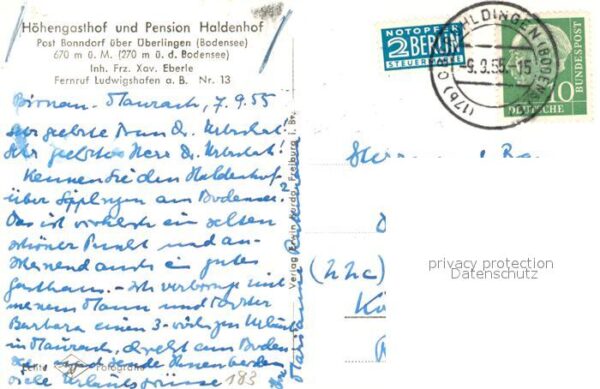 Höhengasthof und Pension Haldenhof
Post Bonndorf über Überlingen (Bodensee)
670 m ü. M. (270 m ü. d. Bodensee)
Inh. Frz. Xav. Eberle
Fernruf Ludwigshafen a. B. Nr. 13
NOTOPFER
2 BERLIN
STEUERMARKE
UHLDINGEN (BODEN
-9.9.55.-15
(17b)
10
DEUTSCHE
BUNDESPOST
Birnau-Maurach, 7.9.55
Sehr geehrte Frau Dr.
Sehr geehrter Herr Dr.
Kennen Sie den Haldenhof
über Sipplingen am Bodensee?
Das ist wirklich ein selten
schöner Punkt und an-
scheinend auch ein gutes
Gasthaus. - Ich verbringe mit
meinem Mann und Tochter
Barbara einen 3-wöchigen Urlaub
in Maurach, direkt am Boden
see
viele Urlaubsgrüsse
Marianne
183
Echte Fotografie
Verlag Erwin Burda, Freiburg i. Br.
(22c)
Kö
privacy protection
Datenschutz